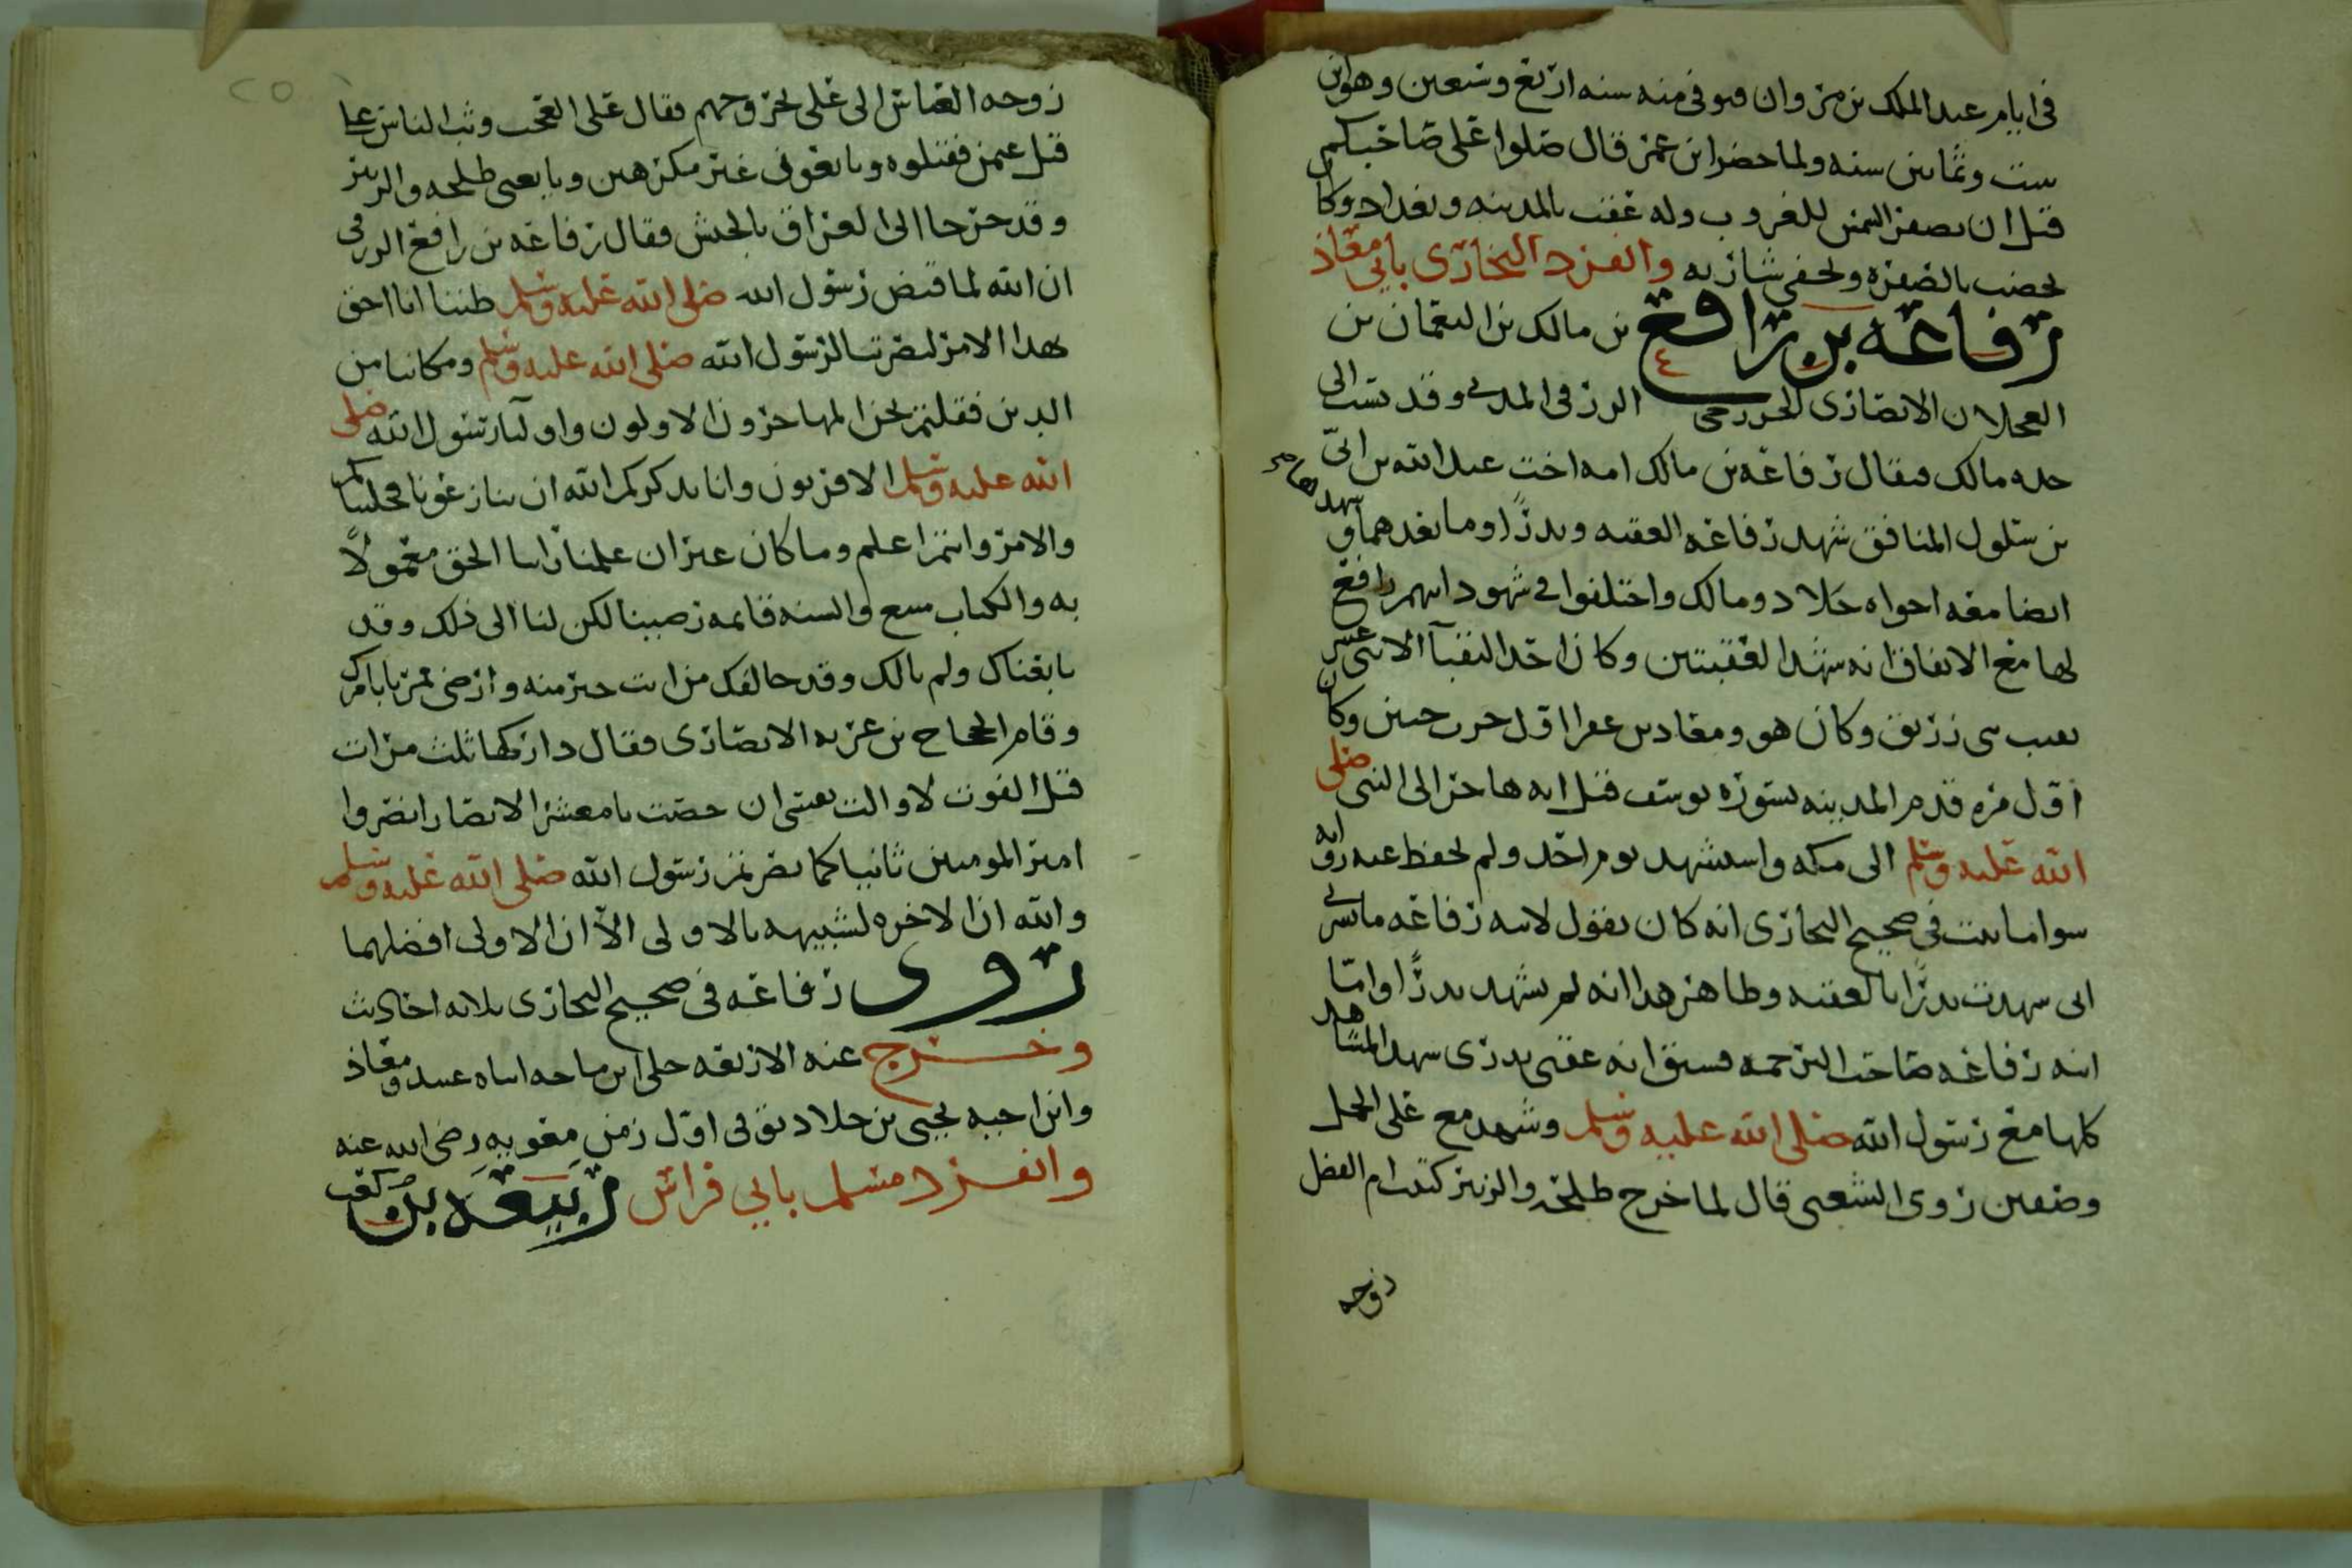 في ايام عبد الملك بن مروان فتوفي منه سنه اربع وسبعين وهو ابن
ست وثمانين سنه ولما حضر ابن عمر قال صلوا على صاحبكم
قبل ان تصفر الشمس للغروب وله عقب بالمدينه وبغداد وكان
يخضب بالصفره ويحفي شاربه وانفرد البخاري بابي معاذ
رفاعه بن رافع بن مالك بن النعمان بن
العجلان الانصاري الخزرجي الزرقي المدني وقد نسب الى
جده مالك فيقال رفاعه بن مالك امه اخت عبد الله بن ابيّ
بن سلول المنافق شهد رفاعه العقبه وبدرًا وما بعدهما وشهدها
ايضا معه اخواه خلاد ومالك واختلفوا في شهود ابيهم رافع
لها مع الاتفاق انه شهد العقبتين وكان احد النقبآ الاثنى عشر
نقيب بني زريق وكان هو ومعاذ بن عفرا اول خزرجيين وكان
اول مره قدم المدينه بسوره يوسف قبل انه هاجر الى النبي صلى
الله عليه وسلم الى مكه واستشهد يوم احد ولم يحفظ عنه روايه
سوا ما ثبت في صحيح البخاري انه كان يقول لابنه رفاعه ما يسرني
اني شهدت بدرًا بالعقبه وظاهر هذا انه لم يشهد بدرًا واما
ابنه رفاعه صاحب الترجمه فسبق انه عقبي بدري شهد المشاهد
كلها مع رسول الله صلى الله عليه وسلم وشهد مع علي الجمل
وصفين روى الشعبي قال لما خرج طلحه والزبير كتبت ام الفضل
زوجه
زوجه العباس الى علي بخروجهم فقال علي العجب وثب الناس على
قتل عثمن فقتلوه وبايعوني غير مكرهين وبايعني طلحه والزبير
وقد خرجا الى العراق بالجيش فقال رفاعه بن رافع الزرقي
ان الله لما قبض رسول الله صلى الله عليه وسلم ظننا انا احق
بهذا الامر لنصرتنا لرسول الله صلى الله عليه وسلم ومكاننا من
الدين فقلتم نحن المهاجرون الاولون واوليآ رسول الله صلى
الله عليه وسلم الاقربون وانا نذكركم الله ان تنازعونا مجلسنا
والامر وانتم اعلم وما كان غير ان علمنا راينا الحق معمولًا
به والكتاب متبع والسنه قائمه رضينا لكن لنا الى ذلك وقد
بايعناك ولم نالك وقد خالفك من انت خير منه وارضى فمرنا بامرك
وقام الحجاج بن غزيه الانصاري فقال داركها ثلث مرات
قبل الفوت لا والت نفسي ان خفت يا معشر الانصار انصروا
امير المومنين ثانيا كما نصرتم رسول الله صلى الله عليه وسلم
والله ان الاخره لشبيهه بالاولى الآ ان الاولى افضلهما
روى رفاعه في صحيح البخاري ثلاثه احاديث
وخرج عنه الاربعه خلى ابن ماجه ابناه عبيد ومعاذ
وابن اخيه يحيى بن خلاد توفي اول زمن معويه رضي الله عنه
وانفرد مسلم بابي فراس ربيعه بن كعب